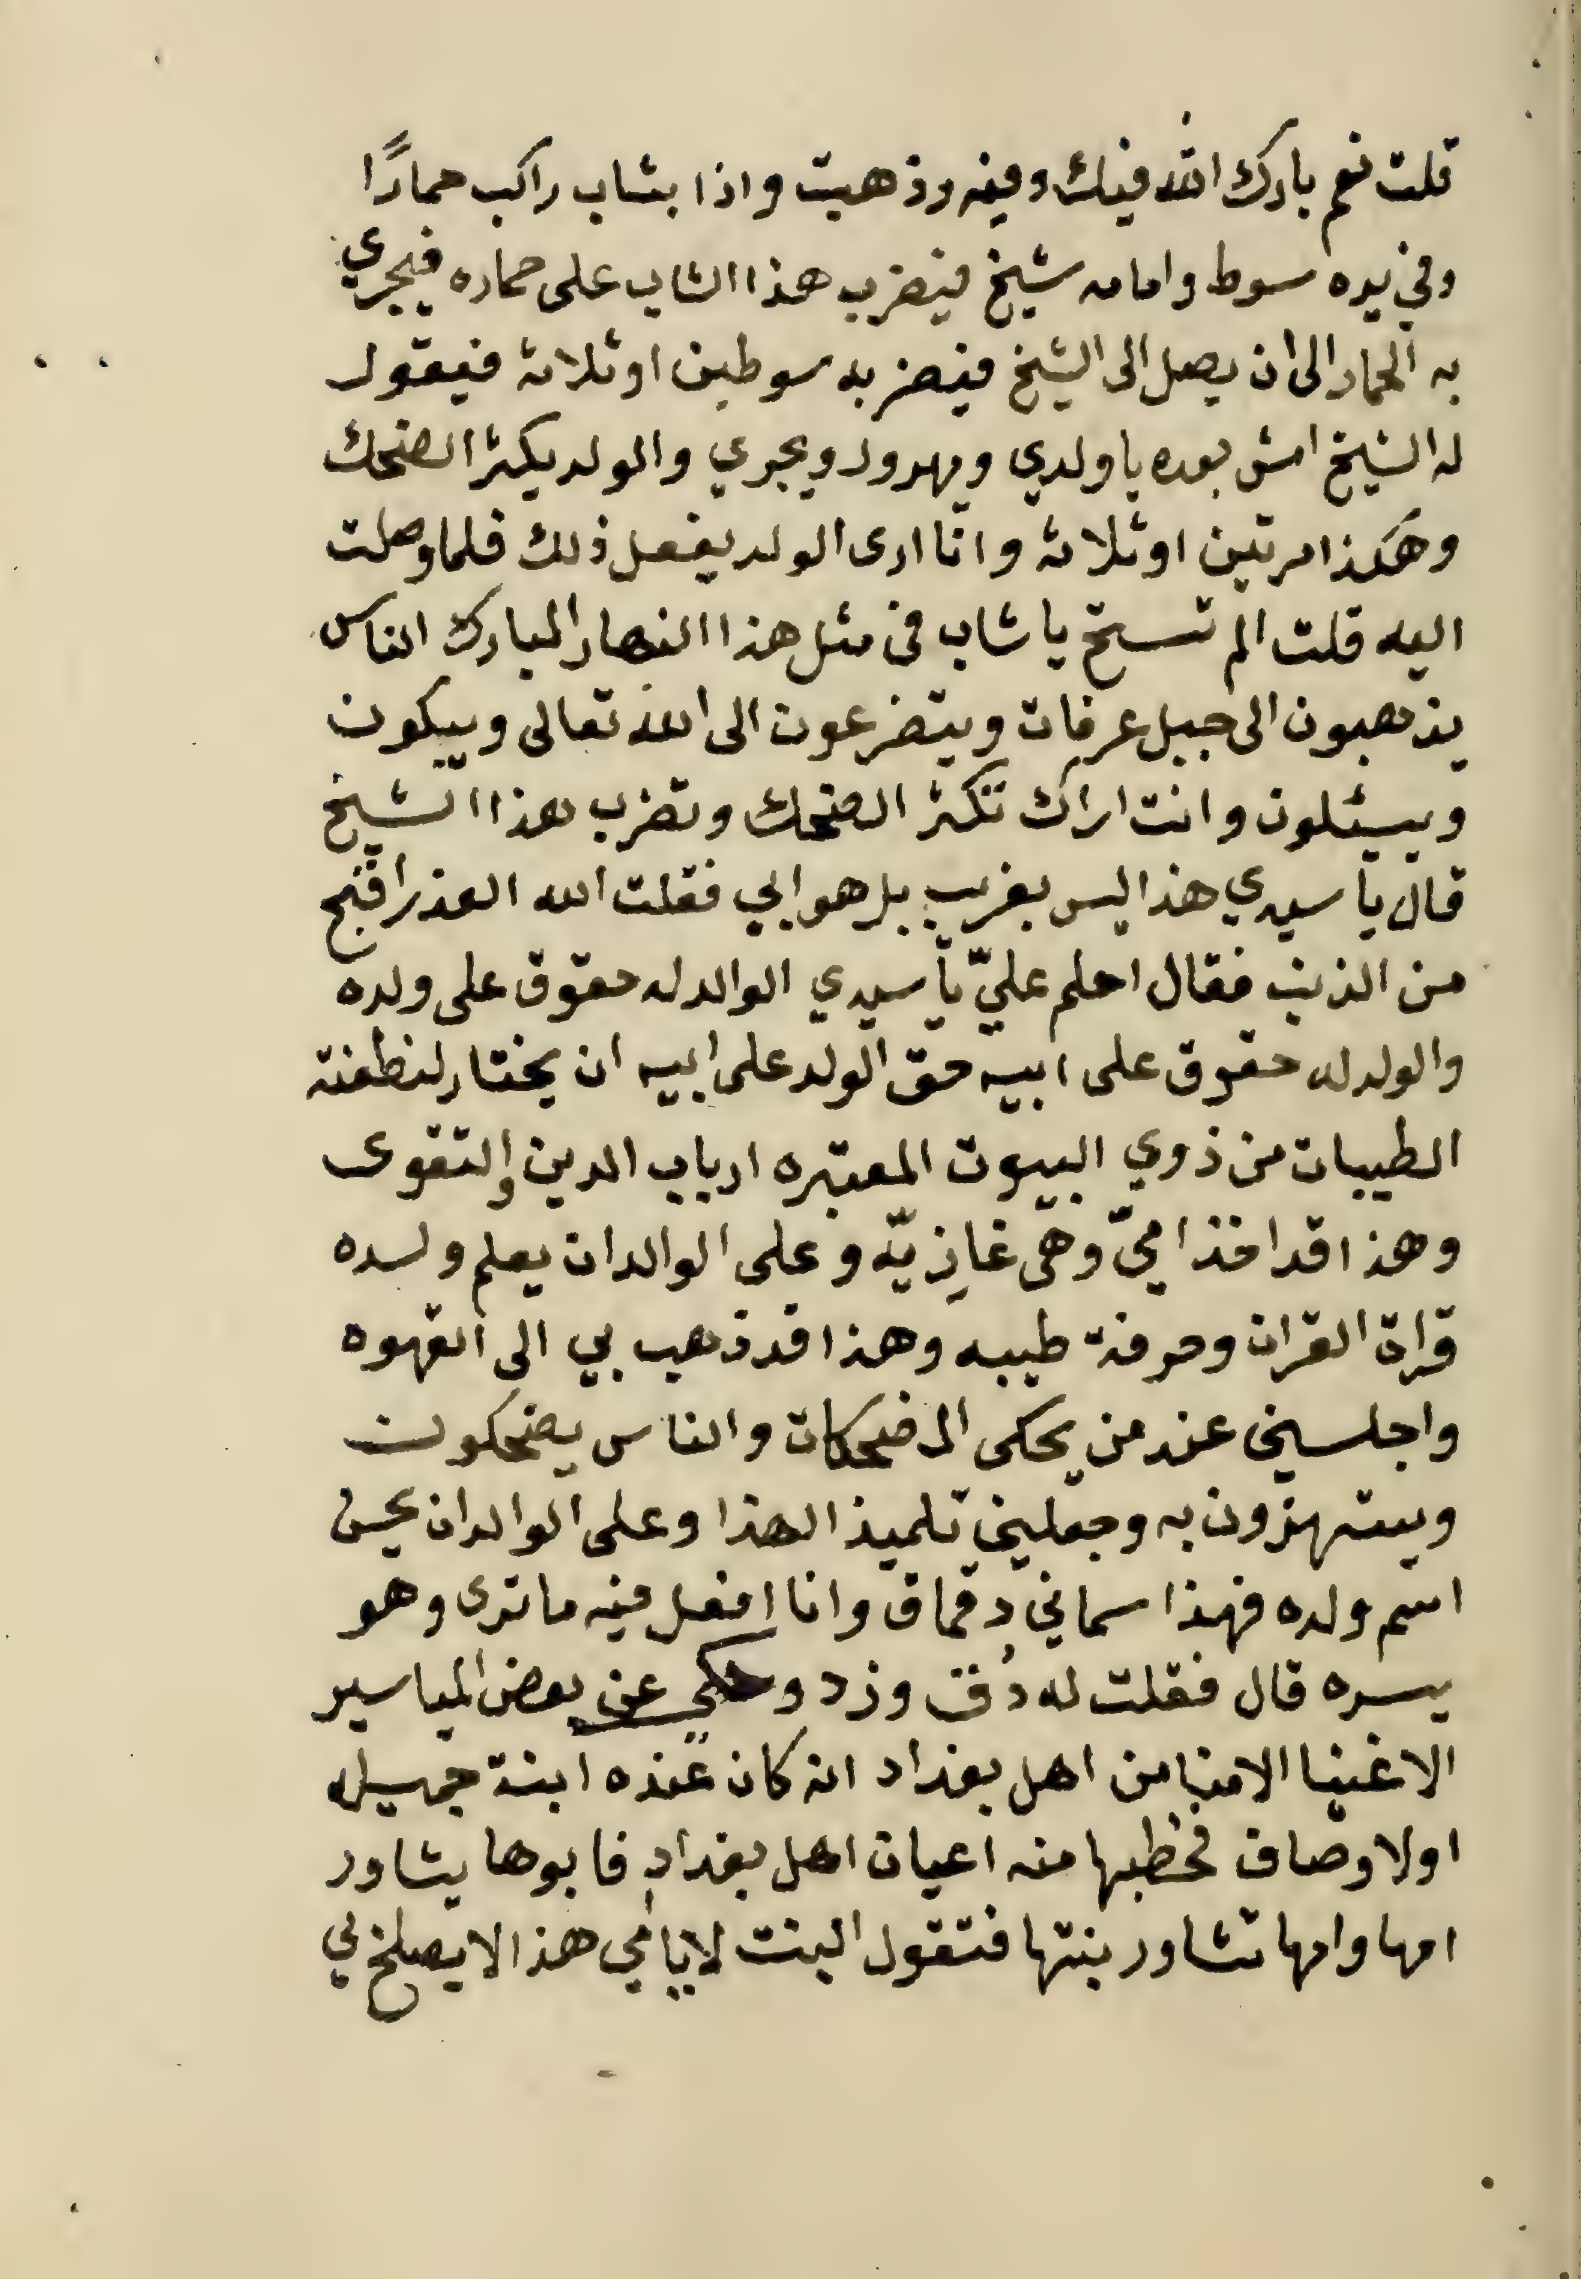 قلت نعم بارك الله فيك وفيه وذهبت واذا بشاب راكب حمارًا
وفي يده سوط وامامه شيخ فيضرب هذا الشاب على حماره فيجري
به الحمار الى ان يصل الى الشيخ فيضربه سوطين او ثلاثة فيقول
له الشيخ امش بعده يا ولدي ويهرول ويجري والولد يكثر الضحك
وهكذا مرتين او ثلاثة وانا ارى الولد يفعل ذلك فلما وصلت
اليه قلت الم تستح يا شاب في مثل هذا النهار المبارك الناس
يذهبون الى جبل عرفات ويتضرعون الى الله تعالى ويبكون
ويسئلون وانت اراك تكثر الضحك وتضرب هذا الشيخ
قال يا سيدي هذا ليس بغريب بل هو ابي فقلت الله العذر اقبح
من الذنب فقال احلم عليّ يا سيدي الوالد له حقوق على ولده
والولد له حقوق على ابيه حق الولد على ابيه ان يختار لنطفته
الطيبات من ذوي البيوت المعتبره ارباب الدين والتقوى
وهذا قد اخذ اميّ وهي غازيّه وعلى الوالد ان يعلم ولده
قراة القران وحرفة طيبه وهذا قد ذهب بي الى القهوه
واجلسني عند من يحكي المضحكات والناس يضحكون
ويستهزون به وجعلني تلميذا لهذا وعلى الوالد ان يحسن
اسم ولده فهذا سماني دقماق وانا افعل فيه ما ترى وهو
يسره قال فقلت له دُق وزد وحكي عن بعض المياسير
الاغنيا الامنا من اهل بغداد انه كان عنده ابنة جميله
اولاوصاف فخطبها منه اعيان اهل بغداد فابوها يشاور
امها وامها تشاور بنتها فتقول البنت لا يا امي هذا لا يصلح لي